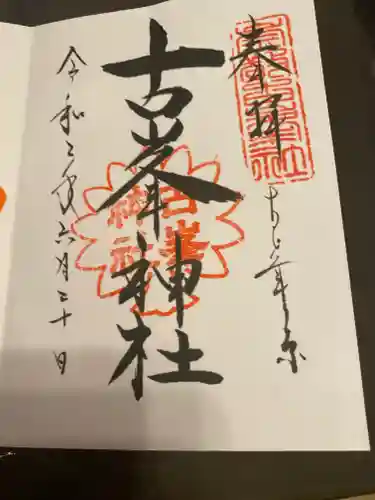 奉拝
古峯神社
令和三年六月二十日
古峯神社